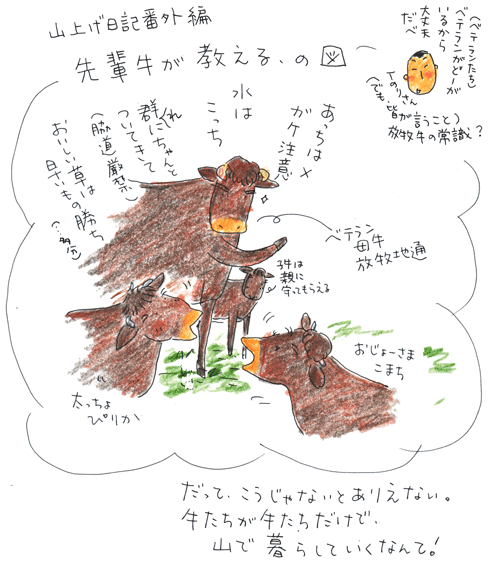 山上げ日記番外編
先輩牛が教える、の図
(ベテランたち)
ベテランがどーが
いるから
大丈夫
だべ
Tのりさん
(でも、皆が言うこと)
放牧牛の常識?
あっちは×
がケ注意
水は
こっち
群れにちゃんと
ついてきて
(脇道厳禁)
おいしい草は
早いもの勝ち
(…多分)
ベテラン
母牛
放牧地通
子牛は
親に
守ってもらえる
おじょーさま
こまち
太っちょ
ぴりか
だって、こうじゃないとありえない。
牛たちが牛たちだけで、
山で暮らしていくなんて!